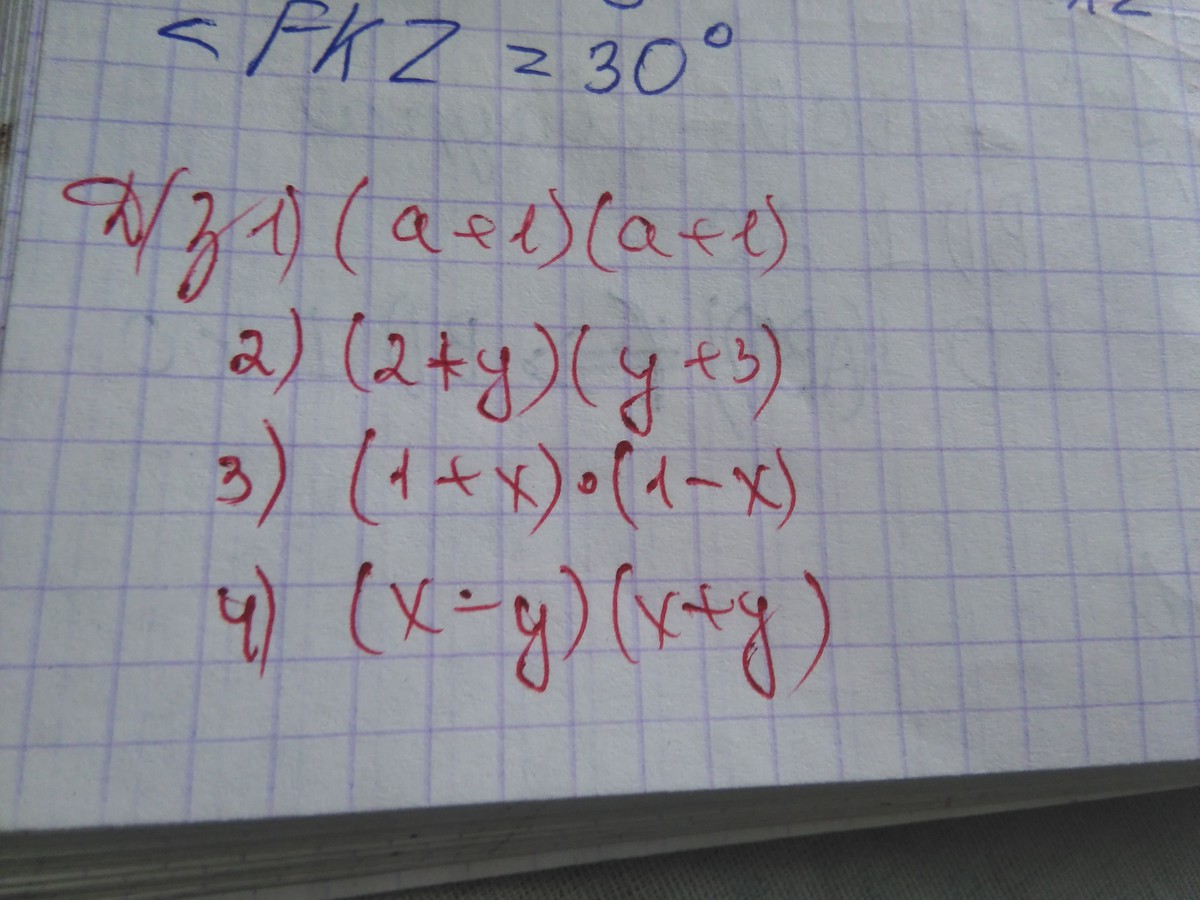 < FKZ = 30°
Д/з 1) (a+1)(a+1)
2) (2+y)(y+3)
3) (1+x)•(1-x)
4) (x-y)(x+y)